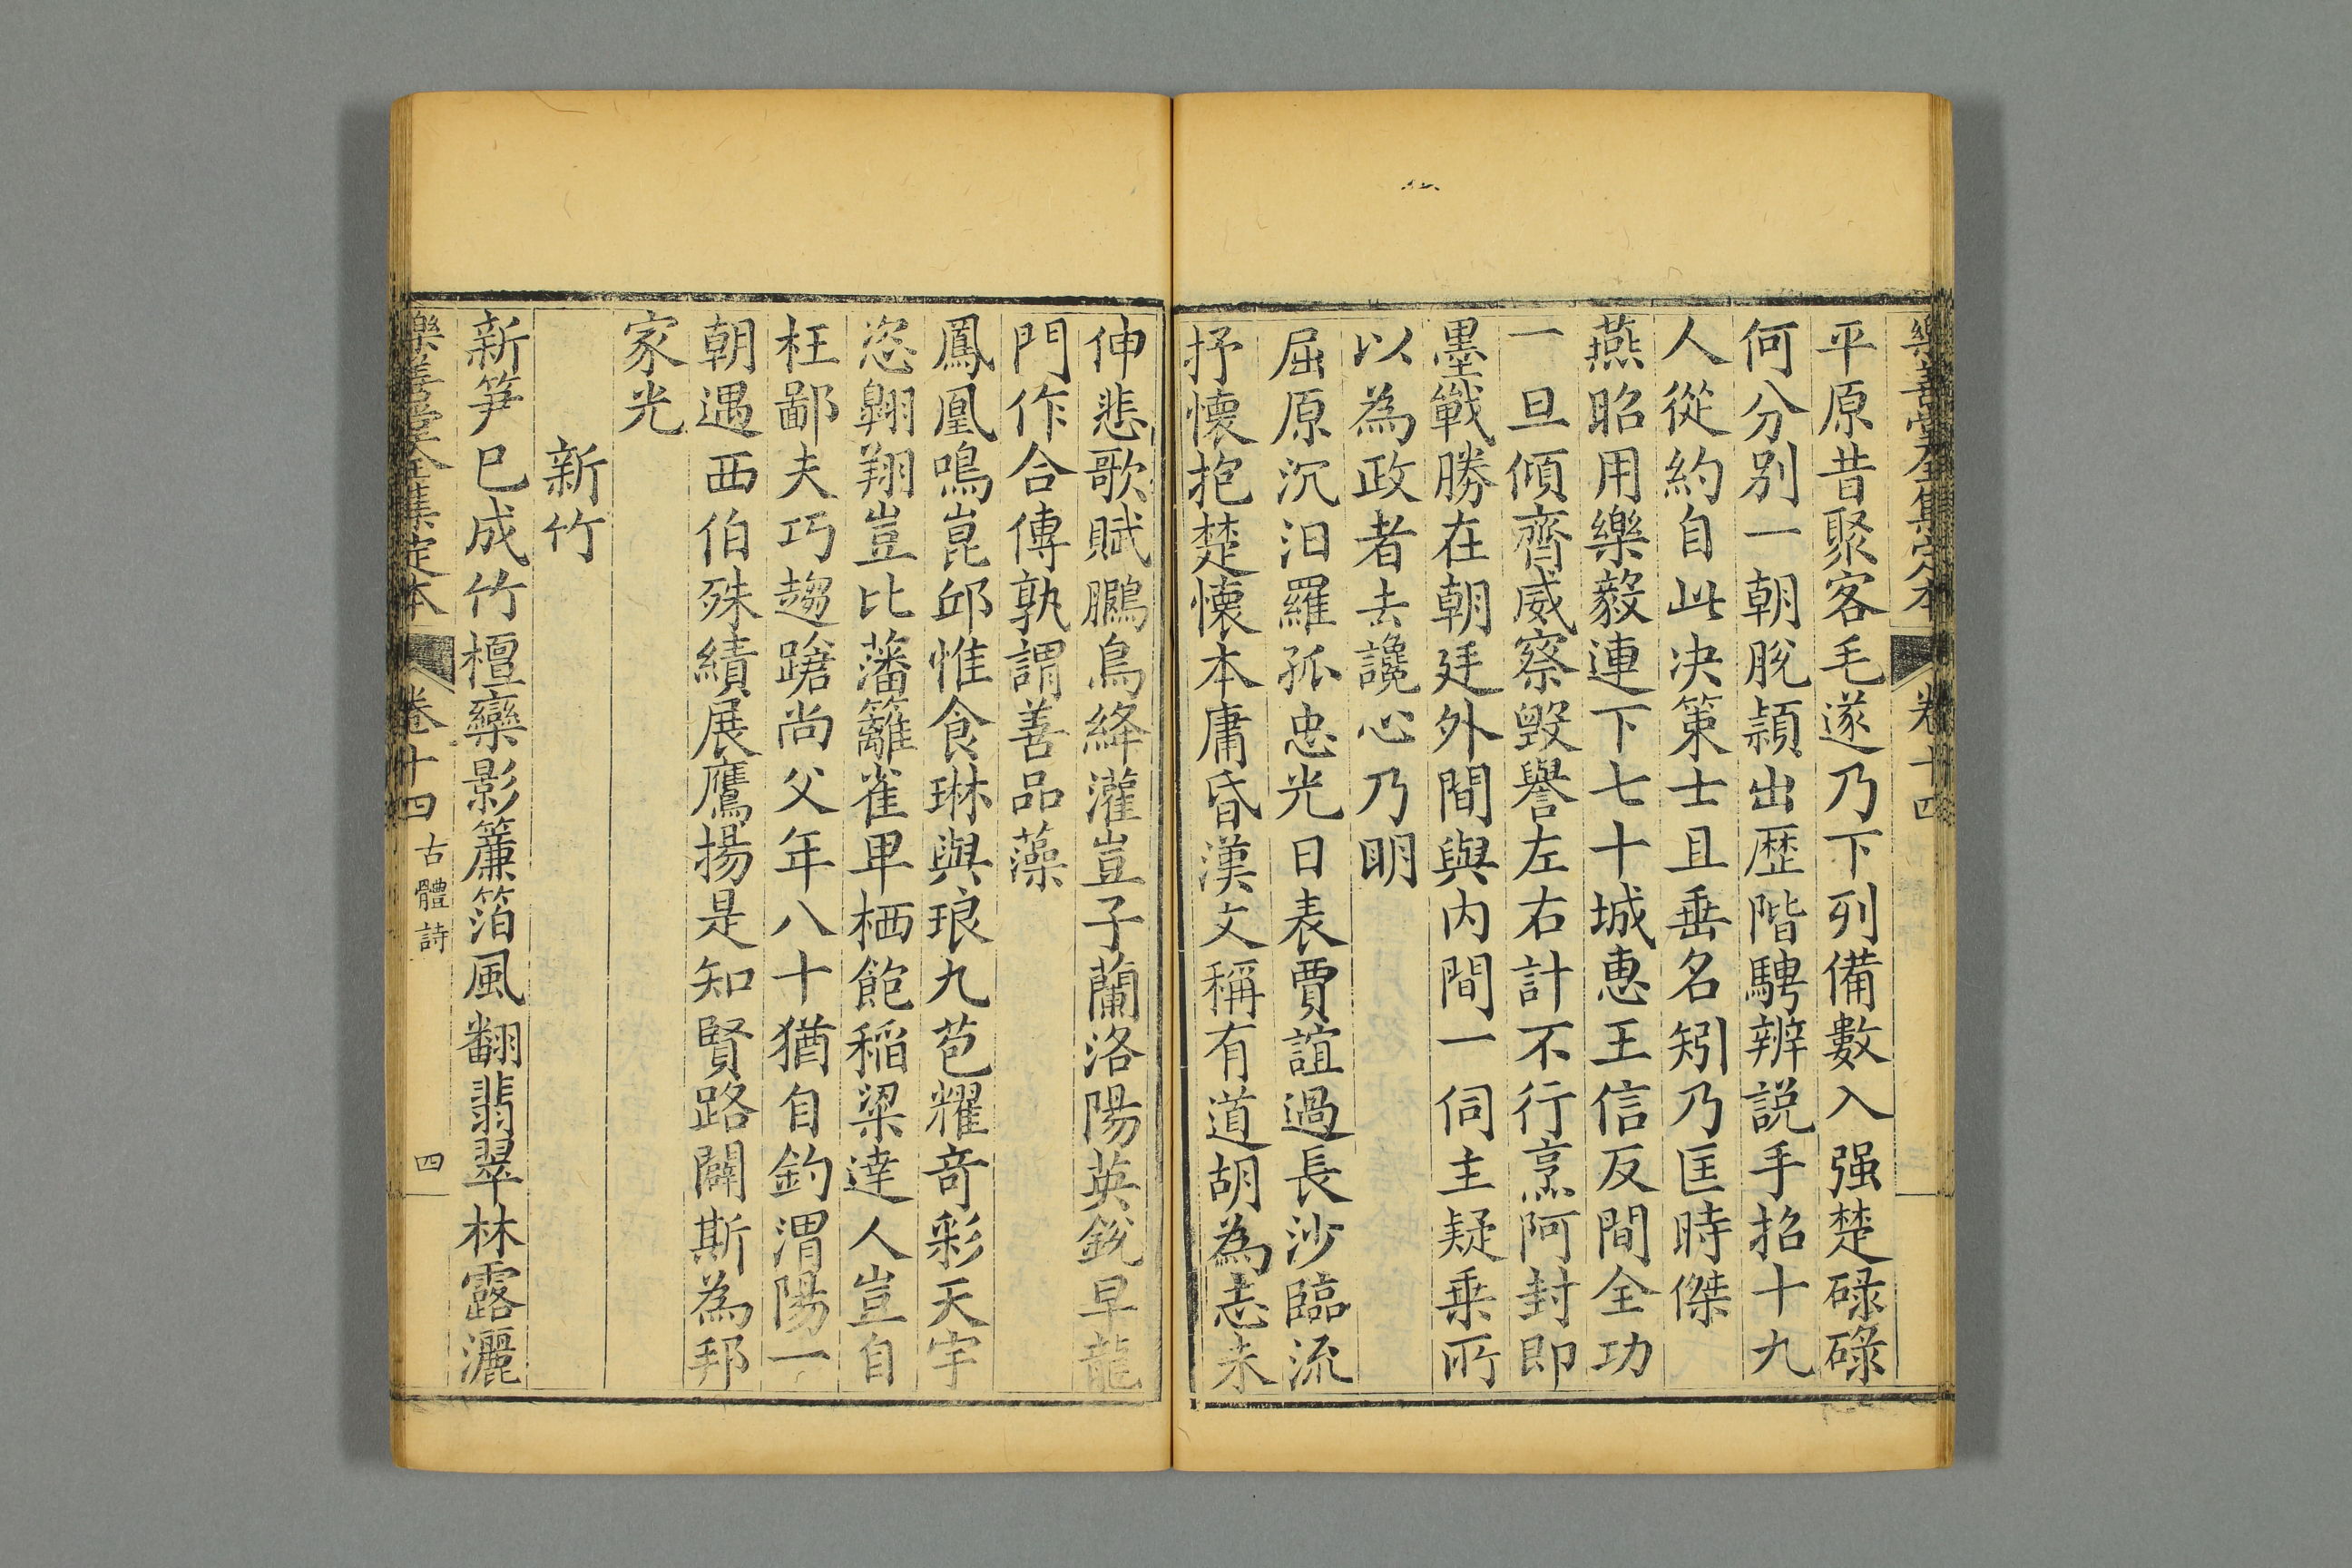 樂善堂全集定本 卷十四
平原昔聚客毛遂乃下列備數入强楚碌碌
何分別一朝脫頴出歷階騁辨説手招十九
人從約自此决策士且垂名矧乃匡時傑
燕昭用樂毅連下七十城惠王信反間全功
一旦傾齊威察毀譽左右計不行烹阿封即
墨戰勝在朝廷外間與内間一伺主疑乗所
以為政者去讒心乃明
屈原沉汨羅孤忠光日表賈誼過長沙臨流
抒懷抱楚懷本庸昏漢文稱有道胡為志未
伸悲歌賦鵩鳥絳灌豈子蘭洛陽英銳早龍
門作合傳孰謂善品藻
鳳凰鳴崑邱惟食琳與琅九苞耀竒彩天宇
恣翺翔豈比藩籬雀卑栖飽稻粱達人豈自
枉鄙夫巧趨蹌尚父年八十猶自釣渭陽一
朝遇西伯殊績展鷹揚是知賢路闢斯為邦
家光
新竹
新笋已成竹檀欒影簾箔風翻翡翠林露灑
樂善堂全集定本 卷十四 古體詩 四